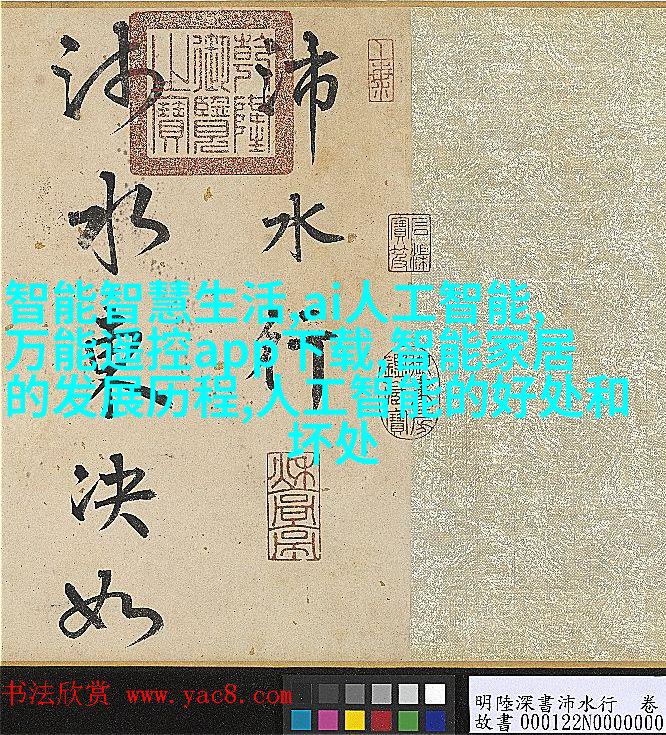 沛水行
沛水東決如
乾隆御覽之寶
智能智慧生活,ai人工智能,
万能遥控app下载,智能家居
的发展历程,人工智能的好处和
坏处
书法欣赏 www.yac8.com
明陸深書沛水行 卷
故書000122N0000000